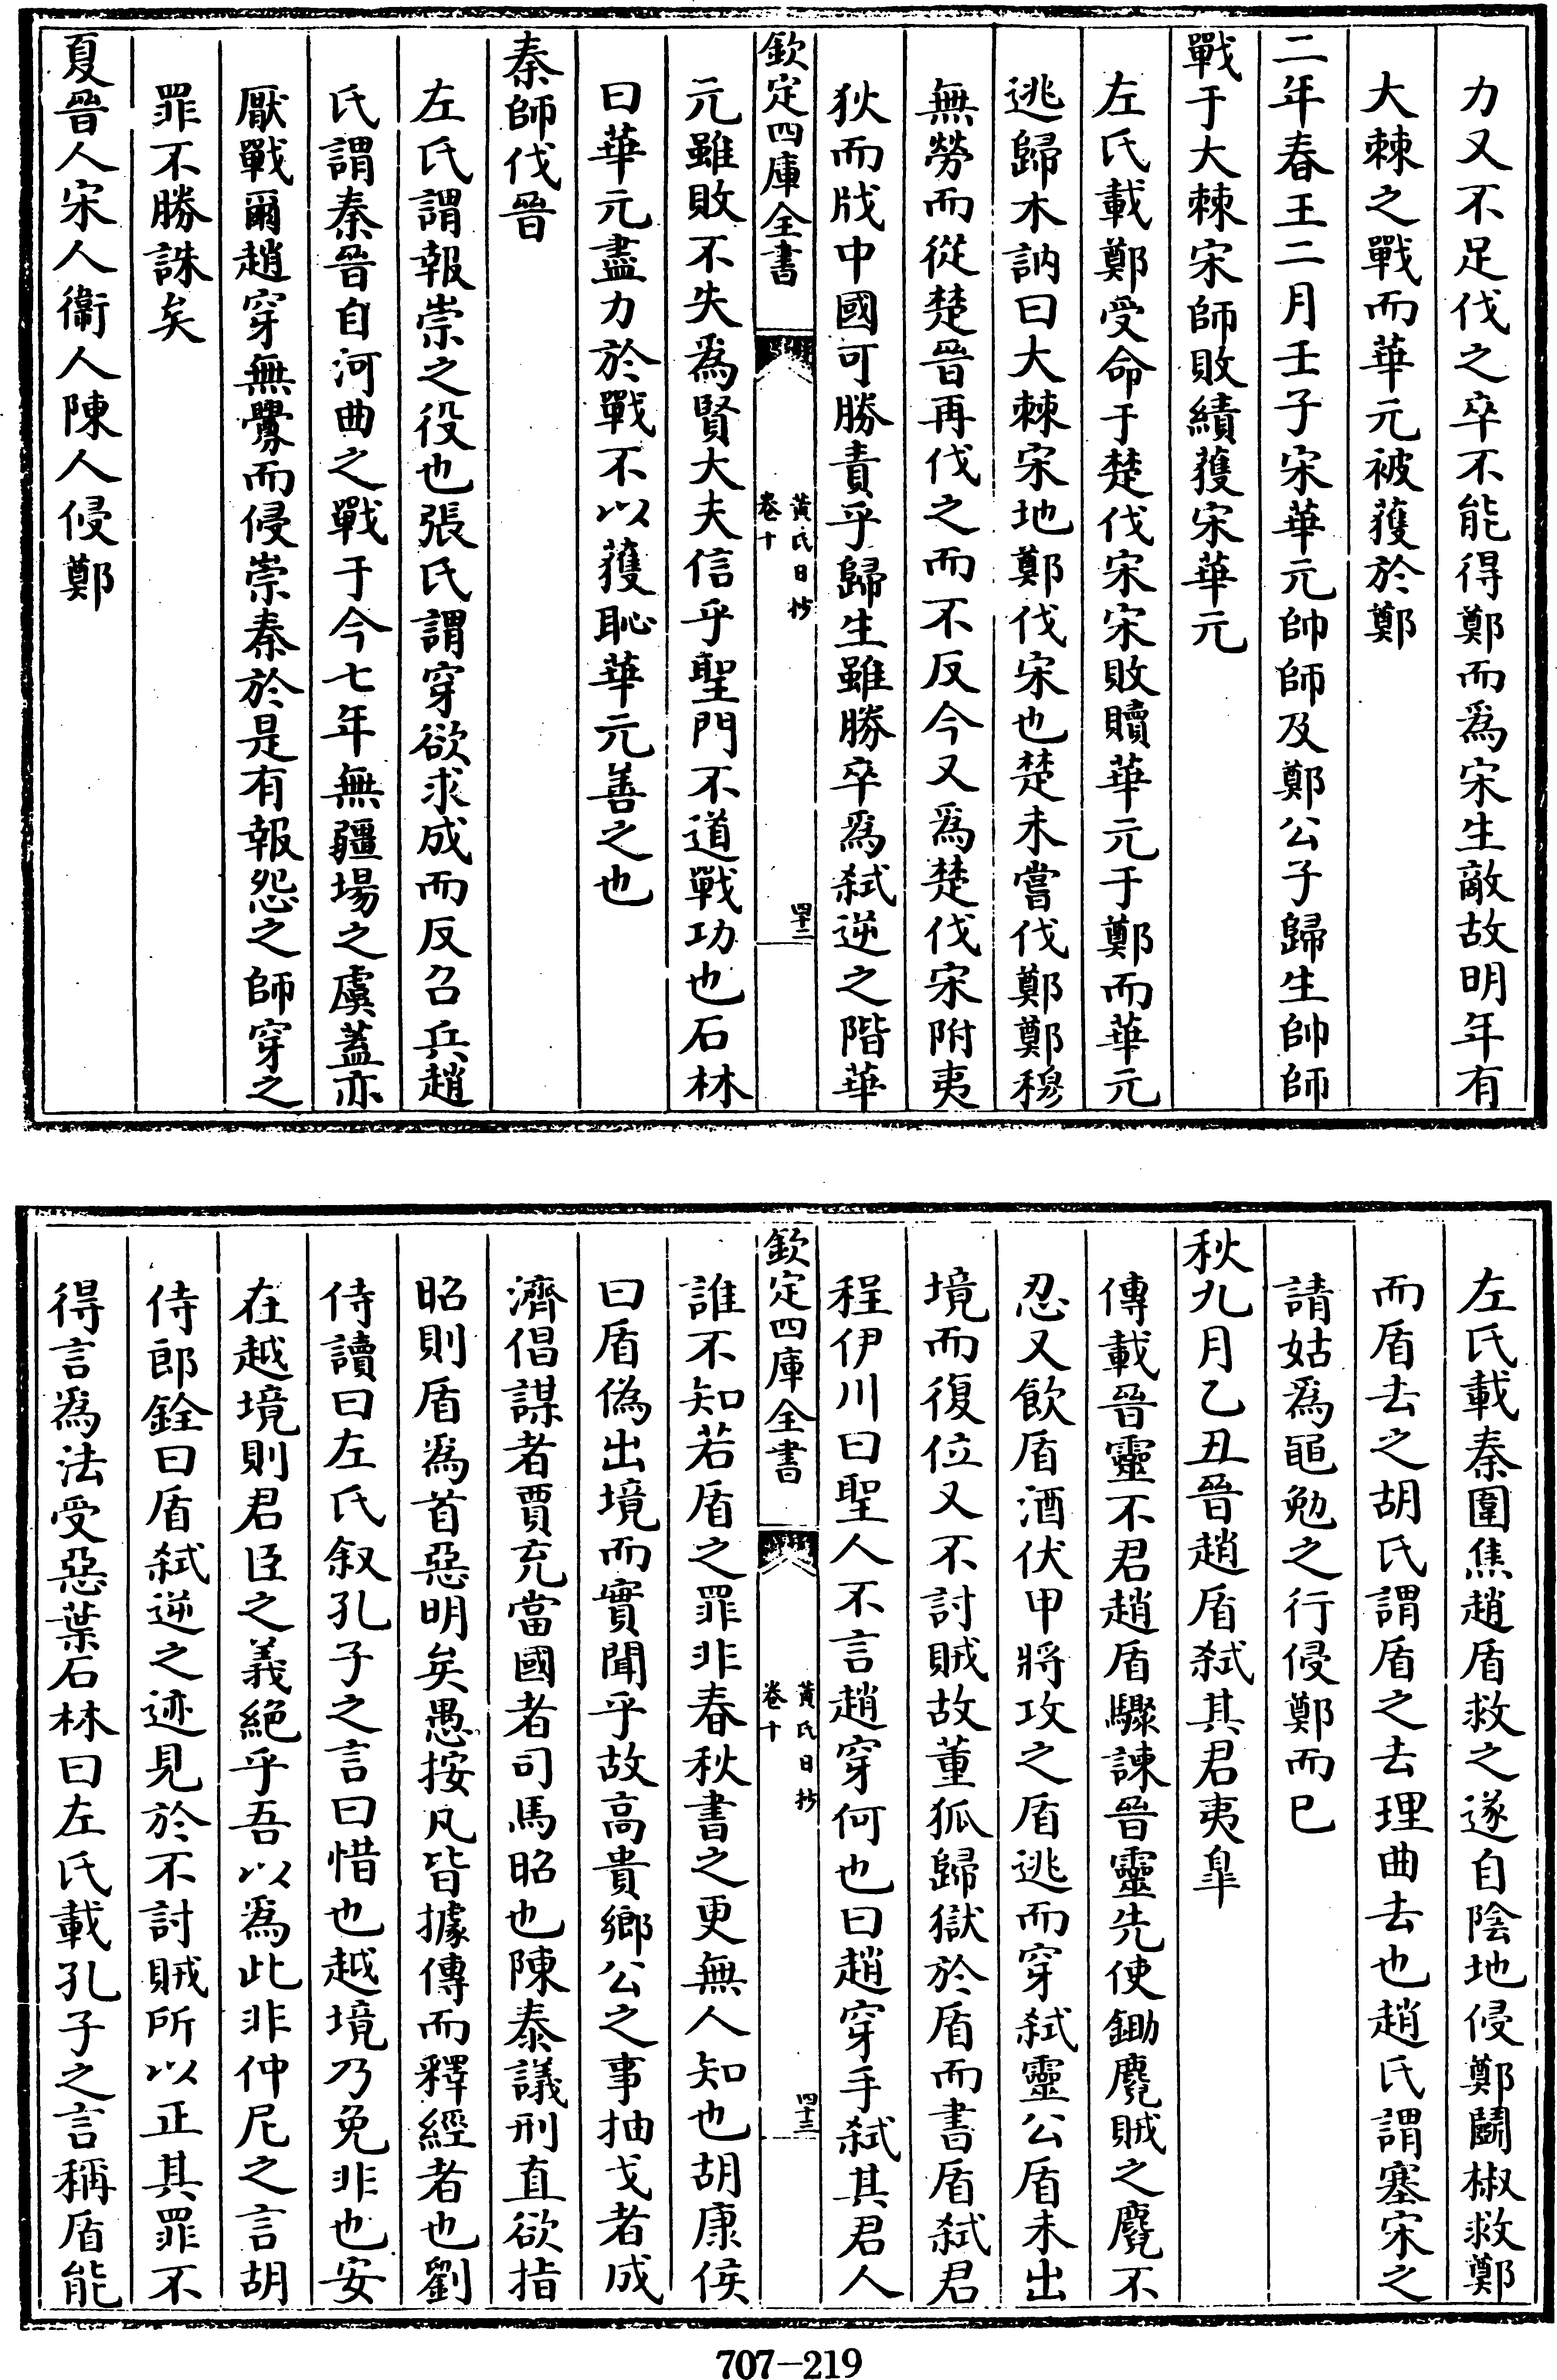 力又不足伐之卒不能得鄭而爲宋生敵故明年有
大棘之戰而華元被獲於鄭
二年春王二月壬子宋華元帥師及鄭公子歸生帥師
戰于大棘宋師敗績獲宋華元
左氏載鄭受命于楚伐宋宋敗贖華元于鄭而華元
逃歸木訥曰大棘宋地鄭伐宋也楚未嘗伐鄭鄭穆
無勞而從楚晉再伐之而不反今又爲楚伐宋附夷
狄而戕中國可勝責乎歸生雖勝卒爲弑逆之階華
欽定四庫全書
黃氏日抄
卷十
四十二
元雖敗不失爲賢大夫信乎聖門不道戰功也石林
曰華元盡力於戰不以獲恥華元善之也
秦師伐晉
左氏謂報崇之役也張氏謂穿欲求成而反召兵趙
氏謂秦晉自河曲之戰于今七年無疆埸之虞蓋亦
厭戰爾趙穿無釁而侵崇秦於是有報怨之師穿之
罪不勝誅矣
夏晉人宋人衞人陳人侵鄭
左氏載秦圍焦趙盾救之遂自陰地侵鄭鬭椒救鄭
而盾去之胡氏謂盾之去理曲去也趙氏謂塞宋之
請姑爲黽勉之行侵鄭而已
秋九月乙丑晉趙盾弑其君夷臯
傳載晉靈不君趙盾驟諫晉靈先使鋤麑賊之麑不
忍又飲盾酒伏甲將攻之盾逃而穿弑靈公盾未出
境而復位又不討賊故董狐歸獄於盾而書盾弑君
程伊川曰聖人不言趙穿何也曰趙穿手弑其君人
欽定四庫全書
黃氏日抄
卷十
四十三
誰不知若盾之罪非春秋書之更無人知也胡康侯
曰盾偽出境而實聞乎故高貴鄉公之事抽戈者成
濟倡謀者賈充當國者司馬昭也陳泰議刑直欲指
昭則盾爲首惡明矣愚按凡皆據傳而釋經者也劉
侍讀曰左氏叙孔子之言曰惜也越境乃免非也安
在越境則君臣之義絕乎吾以爲此非仲尼之言胡
侍郎銓曰盾弑逆之迹見於不討賊所以正其罪不
得言爲法受惡葉石林曰左氏載孔子之言稱盾能
707-219